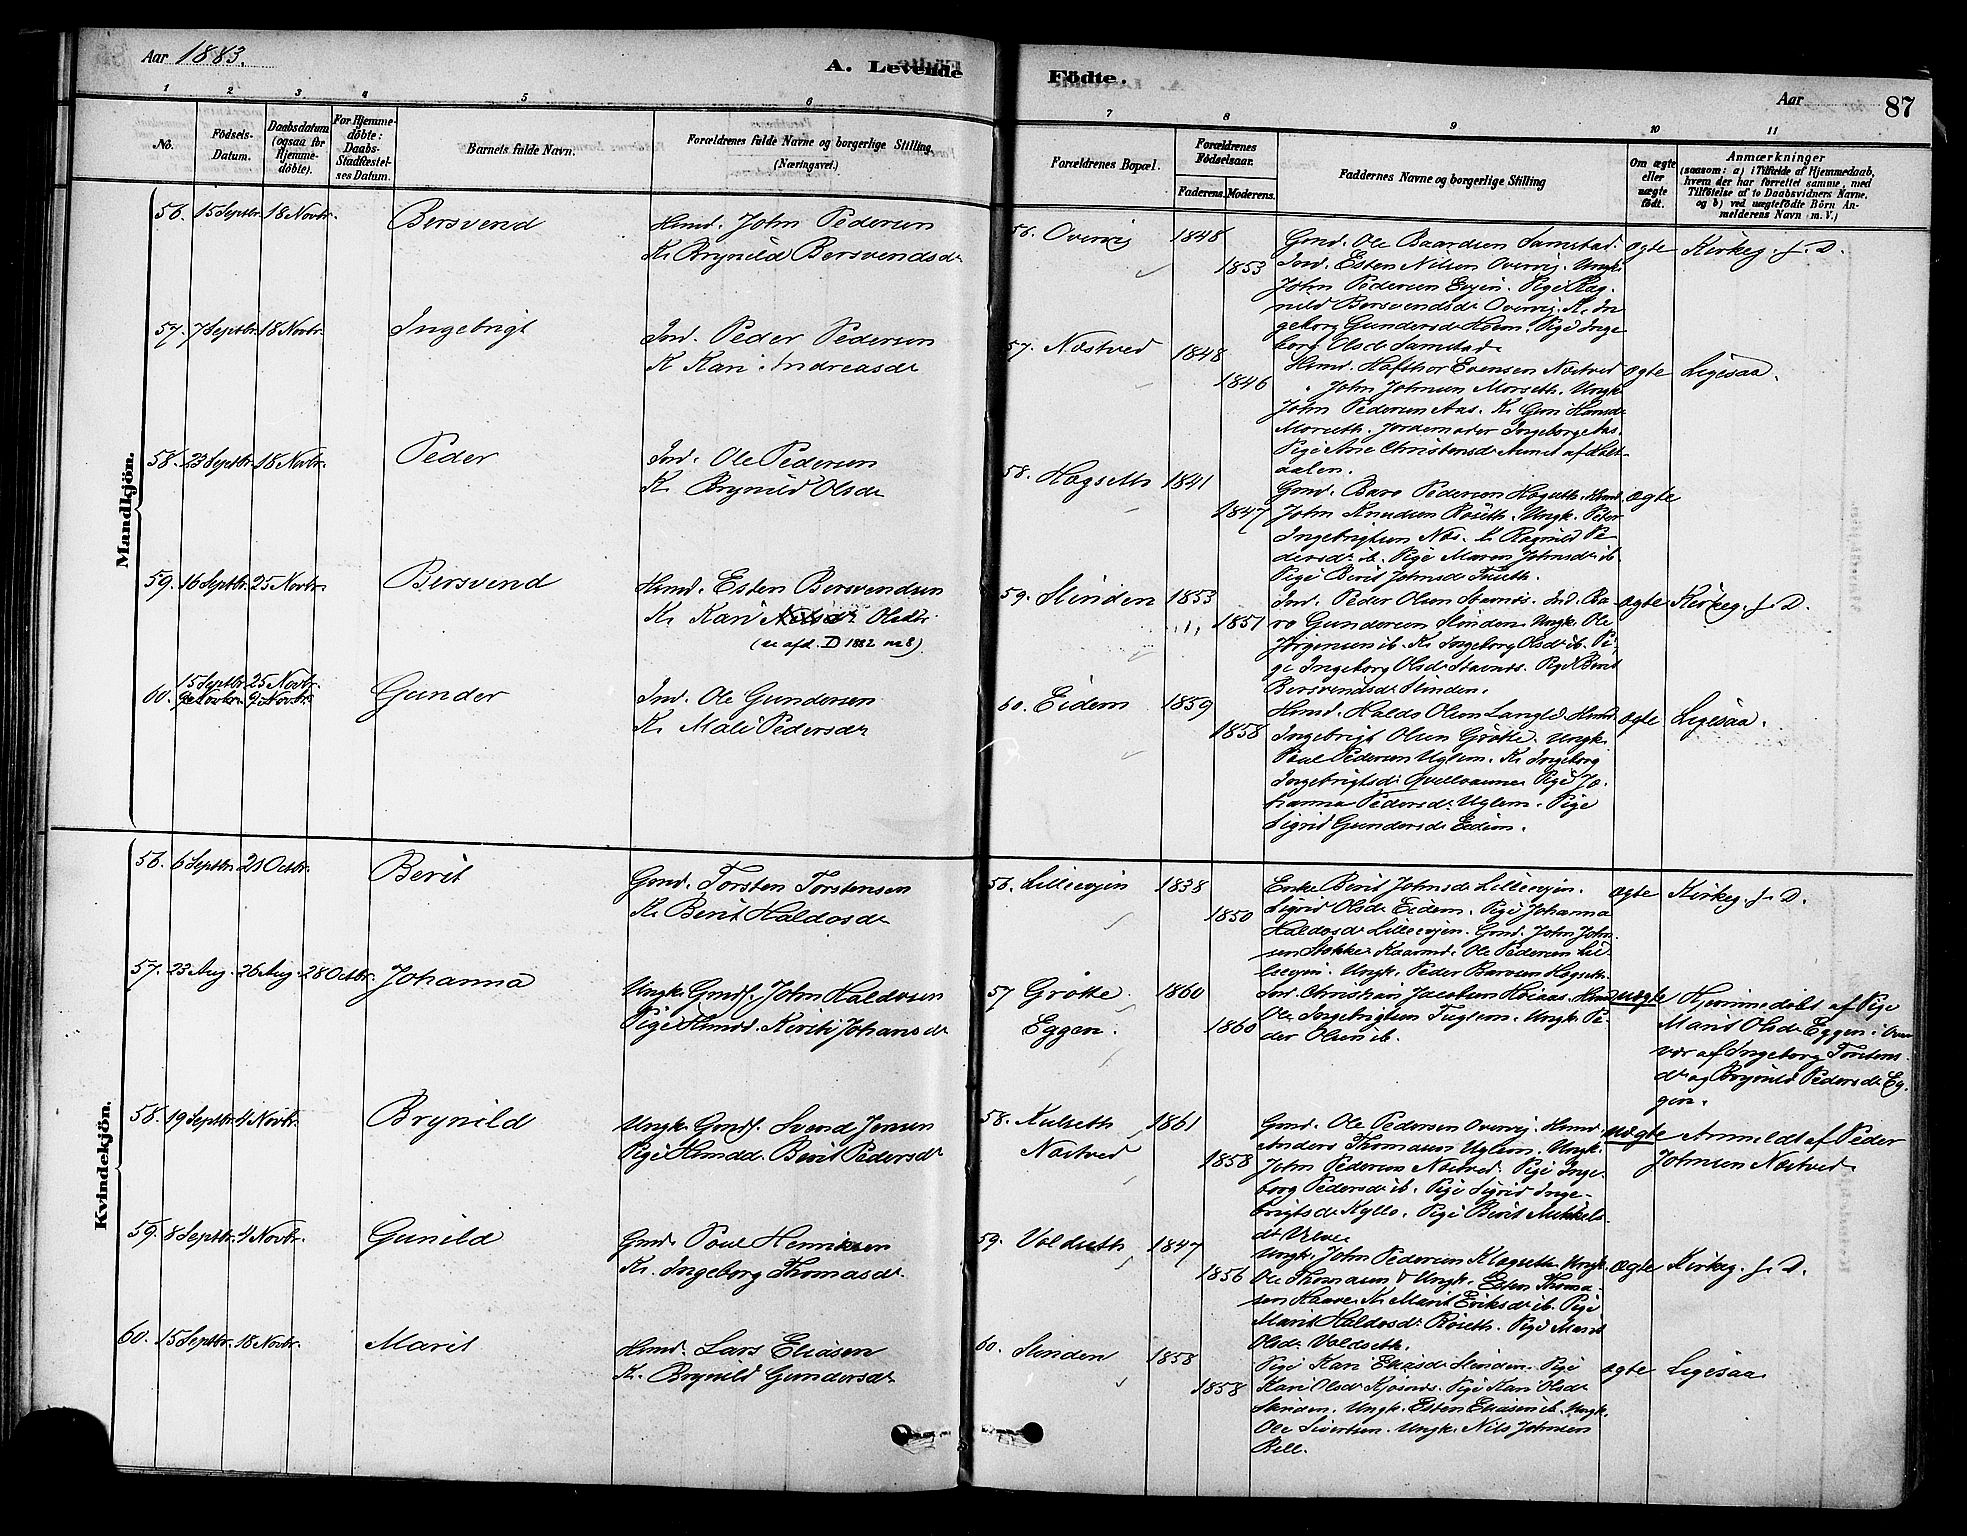 Aar 1883.
A. Levende
Födte.
Aar
87
1
2
3.
4
5
6
7
8
9
10
11
No.
Födsels-Datum.
Daabsdatum (ogsaa for Hjemmedöbte).
For Hjemmedöbte: Daabs-Stadfæstelses Datum.
Barnets fulde Navn.
Forældrenes fulde Navne og borgerlige Stilling.
(Næringsvei.)
Forældrenes Bopæl.
Forældrenes Födselsaar.
Faderens.
Moderens.
Faddernes Navne og borgerlige Stilling
Om ægte eller uægte födt.
Anmærkninger
(saasom: a) i Tilfælde af Hjemmedaab,
hvem der har forrettet samme, med
Tilföielse af to Daabsvidners Navne,
og b) ved uægtefödte Börn An-
melderens Navn m. V.)
Mandkjön.
56. 15 Septbr. 18 Novbr. Bersvend
Hmd. John Pedersen
K. Brynild Bersvendsdr
56. Overvig 1848
1853
Gmd. Ole Baardsen Samstad.
Ind. Esten Nilsen Overvig. Ungk.
John Pedersen Evjen. Pige Rag-
nild Bersvendsdr Overvig. K. In-
geborg Gundersdr Hoem. Pige Inge
borg Olsdr Samstad.
ægte Kirkeg. f. D.
57. 7 Septbr. 18 Novbr. Ingebrigt
Ind. Peder Pedersen
K. Kari Andreasdr
57. Næstved 1848
1846
Hmd. Hafthor Evensen Næstved
" John Johnsen Morseth. Ungk.
John Pedersen Aas. K. Guri Hansdr
Morseth. Jordemoder Ingeborg Aas.
Pige Ane Christensdr Aunet af Holt-
aalen.
ægte Ligesaa.
58. 23 Septbr. 18 Novbr. Peder
Ind. Ole Pedersen
K. Brynild Olsdr
58. Hogseth 1841
1847
Gmd. Baro Pedersen Hogseth. Hmd.
John Knudsen Roseth. Ungk. Peter
Ingebrigtsen Næs. K. Ragnild Pe-
dersdr ib. Pige Maren Johnsdr ib.
Pige Berit Johnsdr
ægte
59. 16 Septbr. 25 Novbr. Bersvend
Hmd. Esten Bersvendsen
K. Kari Nilsdr Olsdr
(se afd. D 1882 no 8)
59. Slinden 1853
1851
Ind. Peder Olsen Stavnæs. Ind. Ba-
ro Gundersen Slinden. Ungk. Ole
Jørgensen ib. K. Ingeborg Olsdr ib. Pi-
ge Ingeborg Olsdr Stavnæs. Pige Berit
Bersvendsdr Slinden.
ægte Kirkeg. f. D.
15 Septbr 25 Novbr.
60. Gunder
Ind. Ole Gundersen
K. Mali Pedersdr
60. Eidem 1859
1858
Hmd. Haldo Olsen Langli. Hmd.
Ingebrigt Olsen Grøtte. Ungk.
Poul Pedersen Uglem. K. Ingeborg
Ingebrigtsdr Qvellosaunet. Pige Jo-
hanna Pedersdr Uglem. Pige
Sigrid Gundersdr Eidem.
ægte Ligesaa.
Kvindekjön.
56. 6 Septbr. 21 Octbr. Berit
Gmd. Torsten Torstensen
K. Berit Haldosdr
56. Lillevjen 1838
1850
Enke Berit Johnsdr Lillevjen.
Sigrid Olsdr Eidem. Pige Johanna
Haldosdr Lillevjen. Gmd. John John-
sen Stokke. Kaarmd. Ole Pedersen Lil-
levjen. Ungk. Peder Barosen Hogseth.
ægte Kirkeg. f. D.
57. 23 Aug. 26 Aug. 28 Octbr. Johanna
Ungk. Gmds. John Haldosen
Pige Hmdd. Kirsti Johansdr
57 Grøtte. 1860
Eggen. 1860
Ind. Christian Jacobsen Hoiaas. Hmd
Ole Ingebrigtsen Fuglem. Ungk. Pe-
der Olsen ib.
uægte Hjemmedøbt af Pige
Marit Olsdr Eggen i Over
vær af Ingeborg Torstens-
dr og Brynild Pedersdr Eg-
gen.
58. 19 Septbr. 4 Novbr. Brynild
Ungk. Gmds. Svend Jensen
Pige Hmdd. Berit Pedersdr
58. Kulseth 1861
Næstved 1858
Gmd. Ole Pedersen Overvig. Hmd.
Anders Thomasen Uglem. Ungk.
John Pedersen Næstved. Pige Inge-
borg Pedersdr ib. Pige Sigrid Inge-
brigtsdr Kyllo. Pige Berit Mikkels-
dr
uægte Anmeldt af Peder
Johnsen Næstved.
59. 8 Septbr. 4 Novbr. Gunild
Gmd. Poul Henriksen
K. Ingeborg Thomasdr
59. Voldseth 1847
1856
Ungk. John Pedersen Klægseth. Ungk.
Ole Thomasen & Ungk. Esten Thoma-
sen Haave. K. Marit Eriksdr ib. Pige
Marit Haldosdr Roseth. Pige Marit
Olsdr Voldseth.
ægte Kirkeg. f. D.
60. 15 Septbr. 18 Novbr. Marit
Hmd. Lars Eliasen
K. Brynild Gundersdr
60. Slinden 1858
1858
Pige Kari Eliasdr Slinden. Pige
Kari Olsdr Kjøsnæs. Pige Kari Olsdr
Slinden. Ungk. Esten Eliasen ib. Ungk.
Ole Sivertsen. Ungk. Nils Johnsen
Rell.
ægte Ligesaa